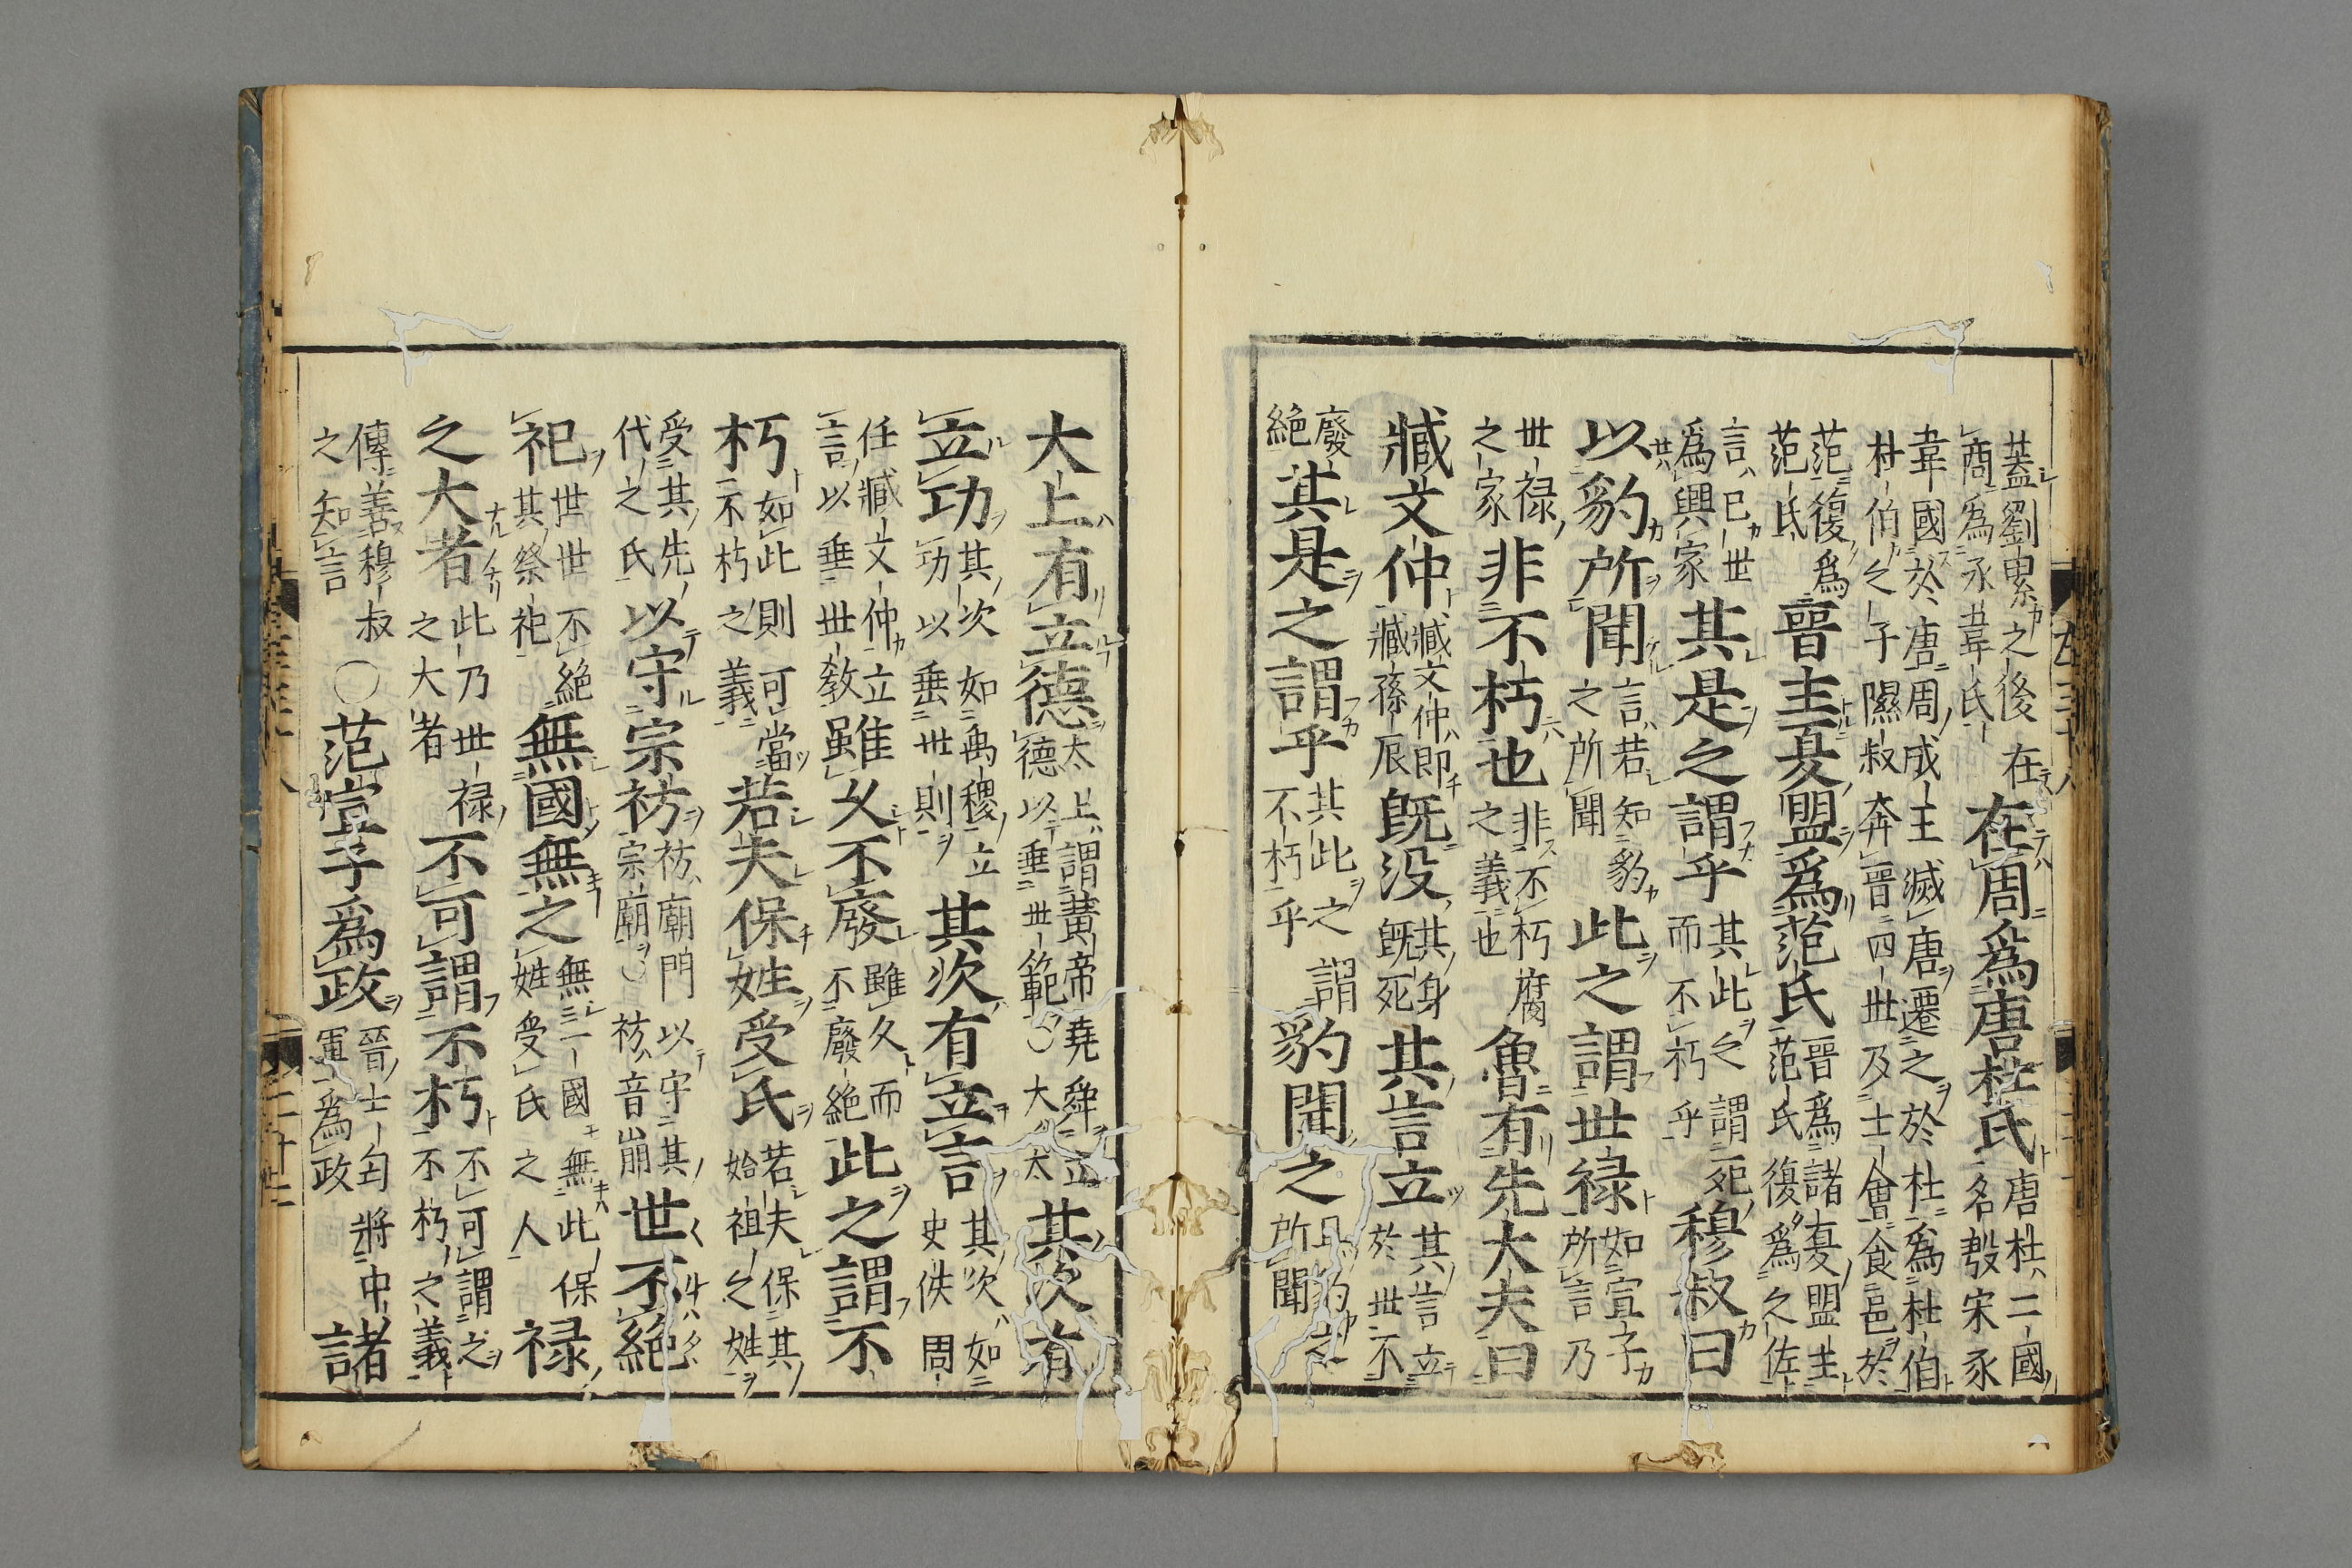 蓋劉累之後在商為豕韋氏在周爲唐杜氏唐杜二國名殷宋豕
韋國於唐周成王滅唐遷之於杜爲杜伯杜伯之子隰叔奔晉四世及士會食邑於
范復爲范氏晉主夏盟爲范氏晉爲諸夏盟主范氏復爲之佐
言己世爲興家其是之謂乎其此之謂死而不朽乎穆叔曰
以豹所聞言若知豹之所聞此之謂世禄如宣子所言乃
世禄之家非不朽也非不朽腐之義也魯有先大夫曰
臧文仲臧文仲即臧孫辰既没其身既死其言立其言立於世不
廢絶其是之謂乎其此之謂不朽乎豹聞之豹之所聞
大上有立德太上謂黄帝堯舜立德以垂世範〇大太其次有
立功其次如禹稷立功以垂世則其次有立言其次如史佚周
任臧文仲立言以垂世教雖久不廢雖久而不廢絶此之謂不
朽如此則可當不朽之義若夫保姓受氏若夫保其始祖之姓
受其先代之氏以守宗祊祊廟門以守其宗廟〇祊音崩世不絶
祀世世不絶其祭祀無國無之無一國無此保姓受氏之人禄
之大者此乃世禄之大者不可謂不朽不可謂之不朽之義
傳善穆叔之知言〇范宣子爲政晉士匄將中軍爲政諸